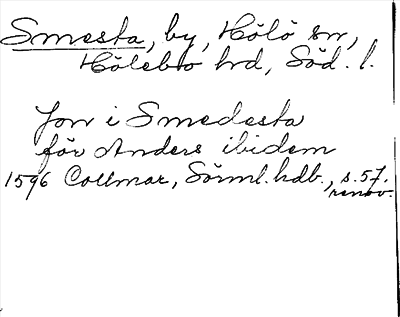 Smesta, by, Hölö sn,
Hölebo hd, Söd. l.
Jon i Smedesta
för Anders ibidem
1596 Collmar, Sörml. hdb., s. 57.
renov.